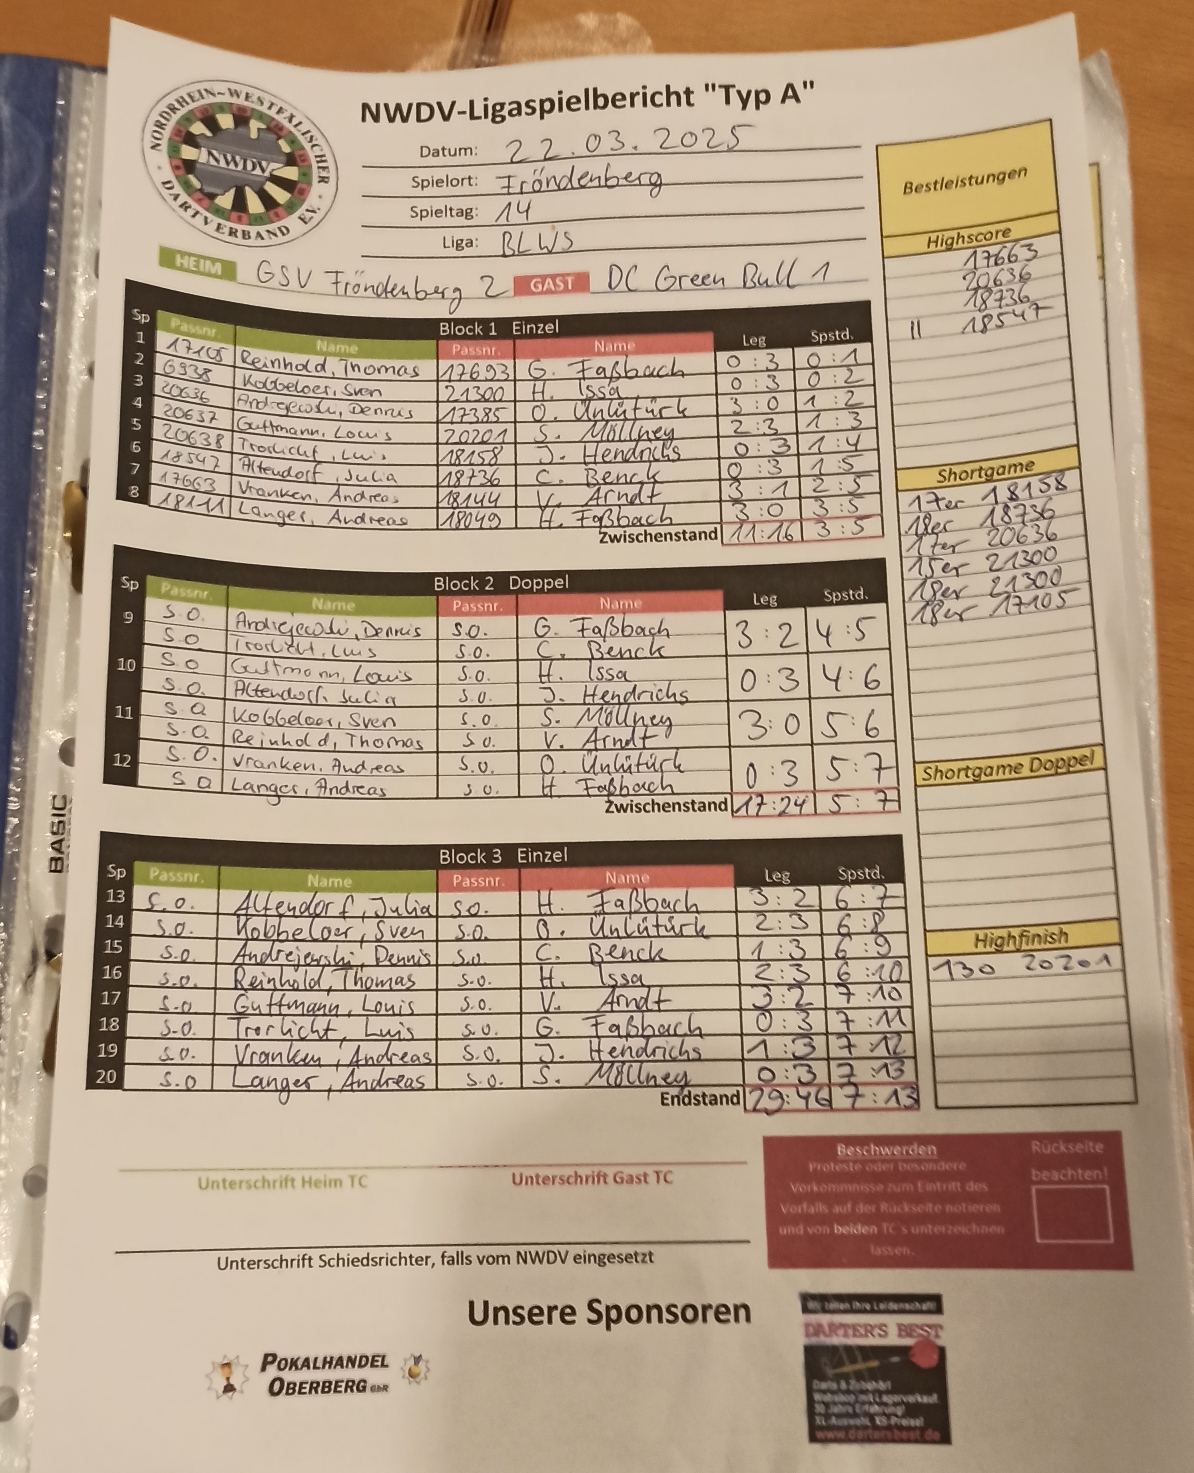 NWDV-Ligaspielbericht "Typ A"
NORDRHEIN-WESTFÄLISCHER DARTVERBAND E.V.
NWDV
Datum: 22.03.2025
Spielort: Fröndenberg
Spieltag: 14
Liga: BLWS
HEIM GSV Fröndenberg 2 GAST DC Green Bull 1
Sp Block 1 Einzel
Passnr. Name Passnr. Name Leg Spstd.
1 17105 Reinhold, Thomas 17693 G. Faßbach 0:3 0:1
2 6938 Kobbeloer, Sven 21300 H. Issa 0:3 0:2
3 20636 Andrejewski, Dennis 17385 O. Ünlütürk 3:0 1:2
4 20637 Guttmann, Louis 20201 S. Möllney 2:3 1:3
5 20638 Trorlicht, Luis 18158 J. Hendrichs 0:3 1:4
6 18547 Altendorf, Julia 18736 C. Benck 0:3 1:5
7 17663 Vranken, Andreas 18144 V. Arndt 3:1 2:5
8 18111 Langer, Andreas 18049 H. Faßbach 3:0 3:5
Zwischenstand 11:16 3:5
Sp Block 2 Doppel
Passnr. Name Passnr. Name Leg Spstd.
9 s.o. Andrejewski, Dennis s.o. G. Faßbach 3:2 4:5
s.o Trorlicht, Luis s.o. C. Benck
10 s.o Guttmann, Louis s.o. H. Issa 0:3 4:6
s.o. Altendorf, Julia s.o. J. Hendrichs
11 s.o Kobbeloer, Sven s.o. S. Möllney 3:0 5:6
s.o. Reinhold, Thomas s.o. V. Arndt
12 s.o. Vranken, Andreas s.o. O. Ünlütürk 0:3 5:7
s.o Langer, Andreas s.o. H. Faßbach
Zwischenstand 17:24 5:7
Sp Block 3 Einzel
Passnr. Name Passnr. Name Leg Spstd.
13 s.o. Altendorf, Julia s.o. H. Faßbach 3:2 6:7
14 s.o. Kobbeloer, Sven s.o. O. Ünlütürk 2:3 6:8
15 s.o. Andrejewski, Dennis s.o. C. Benck 1:3 6:9
16 s.o. Reinhold, Thomas s.o. H. Issa 2:3 6:10
17 s.o Guttmann, Louis s.o. V. Arndt 3:2 7:10
18 s.o. Trorlicht, Luis s.o. G. Faßbach 0:3 7:11
19 s.o. Vranken, Andreas s.o. J. Hendrichs 1:3 7:12
20 s.o Langer, Andreas s.o. S. Möllney 0:3 7:13
Endstand 29:46 7:13
Bestleistungen
Highscore
17663
20636
18736
|| 18547
Shortgame
17er 18158
18er 18736
17er 20636
15er 21300
18er 21300
18er 17105
Shortgame Doppel
Highfinish
130 20201
Unterschrift Heim TC Unterschrift Gast TC
Unterschrift Schiedsrichter, falls vom NWDV eingesetzt
Beschwerden
Proteste oder besondere
Vorkommnisse zum Eintritt des
Vorfalls auf der Rückseite notieren
und von beiden TC's unterzeichnen
lassen.
Rückseite
beachten!
Unsere Sponsoren
POKALHANDEL
OBERBERG GbR
Wir teilen Ihre Leidenschaft!
DARTER'S BEST
Darts & Zubehör!
Webshop mit Lagerverkauf
30 Jahre Erfahrung!
XL-Auswahl, XS-Preise!
www.dartersbest.de
BASIC